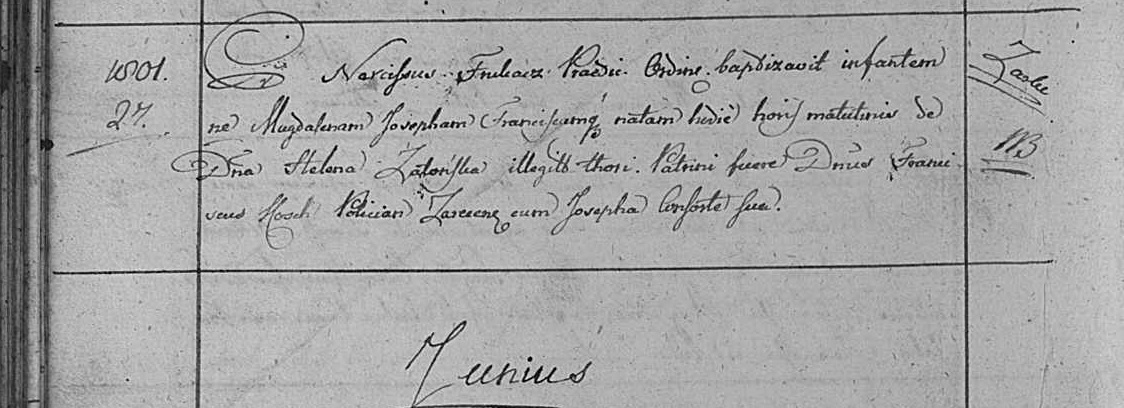 1801.
27.
Narcissus Praedic. Ordine. baptizavit infantem
ne Magdalenam Josepham Franciscamq natam hodie horis matutinis de
Dna Helena Zatorska illegitt thori. Patrini fuere Dnus Franci
scus Hosch cum Josepha Consorte sua.
Junius